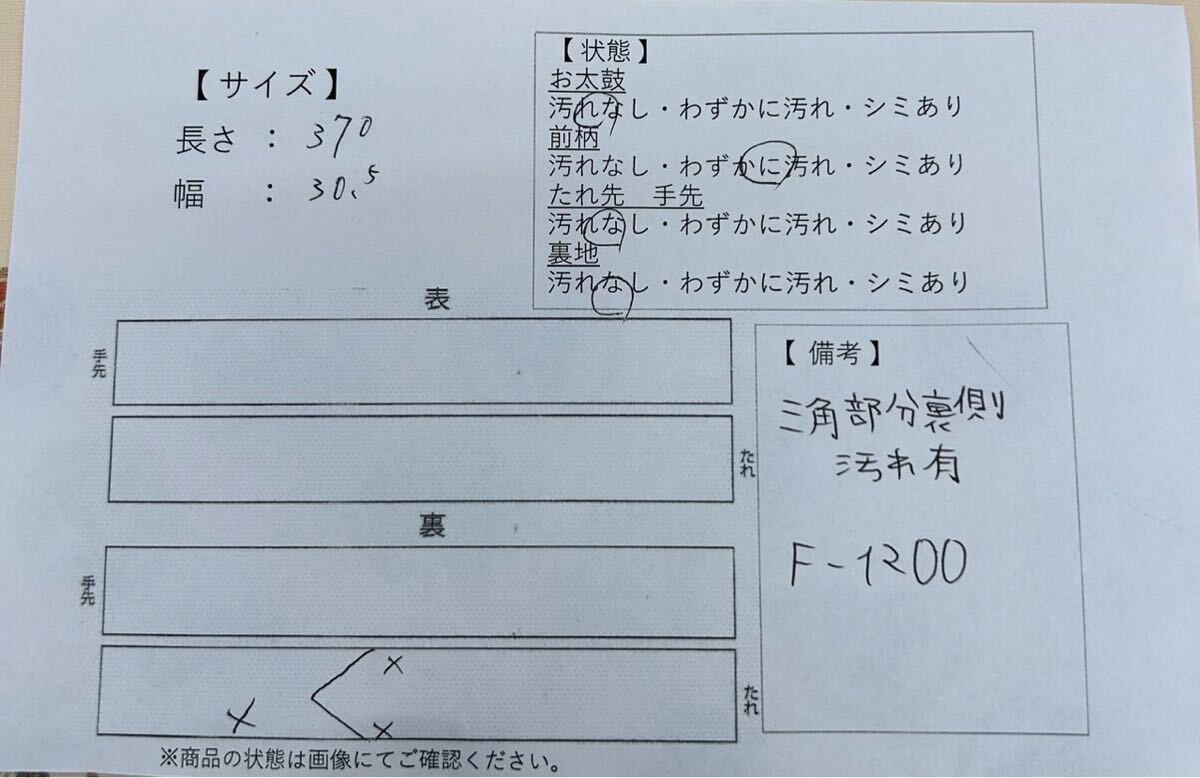 【サイズ】
長さ : 370
幅 : 30.5
【状態】
お太鼓
汚れなし・わずかに汚れ・シミあり
前柄
汚れなし・わずかに汚れ・シミあり
たれ先 手先
汚れなし・わずかに汚れ・シミあり
裏地
汚れなし・わずかに汚れ・シミあり
表
手先
たれ
裏
手先
×
×
×
たれ
【備考】
三角部分裏側
汚れ有
F-1200
※商品の状態は画像にてご確認ください。